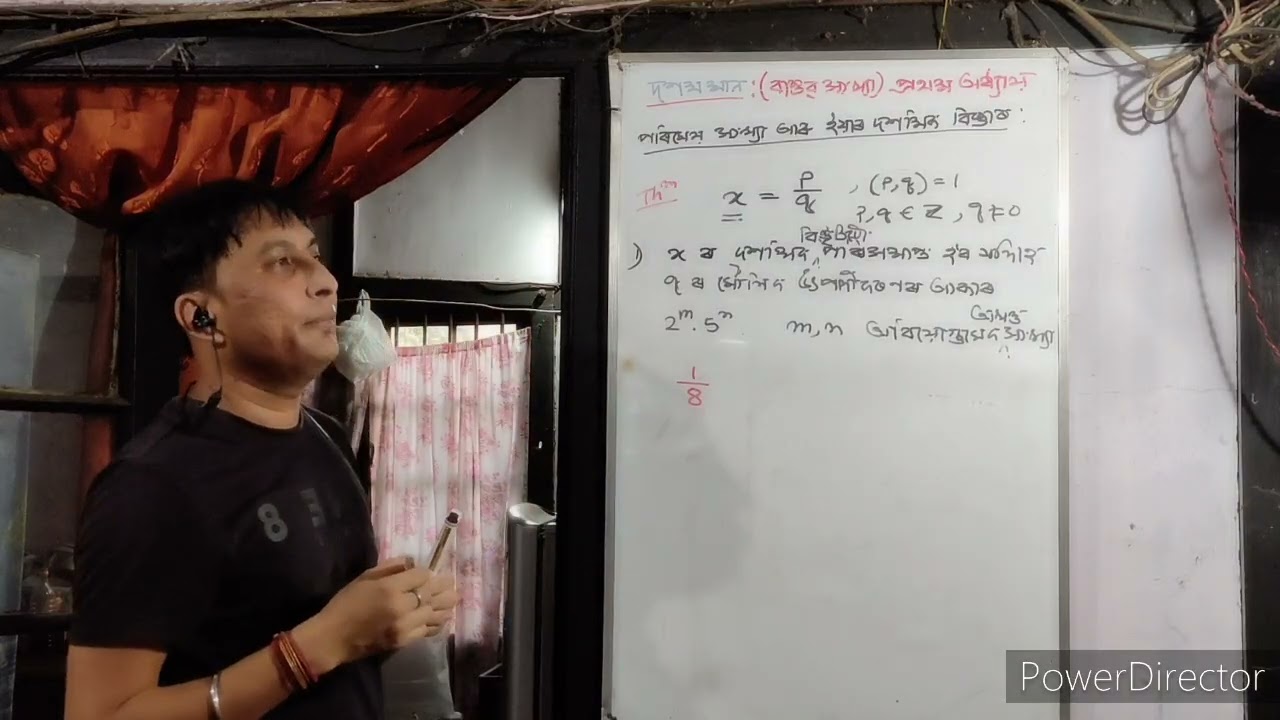 দশমমান : (বাস্তৱ সংখ্যা) প্ৰথম অধ্যায়
পৰিমেয় সংখ্যা আৰু ইয়াৰ দশমিক বিস্তাৰ :
Thm x = p/q , (p,q) = 1
p,q ∈ Z , q ≠ 0
বিস্তৃতি
1) x ৰ দশমিক পৰিসমাপ্ত হ'ব যদিহে
q ৰ মৌলিক উৎপাদকৰ আকাৰ
অখণ্ড
2^m . 5^n m,n সংখ্যা
1/8
8
PowerDirector